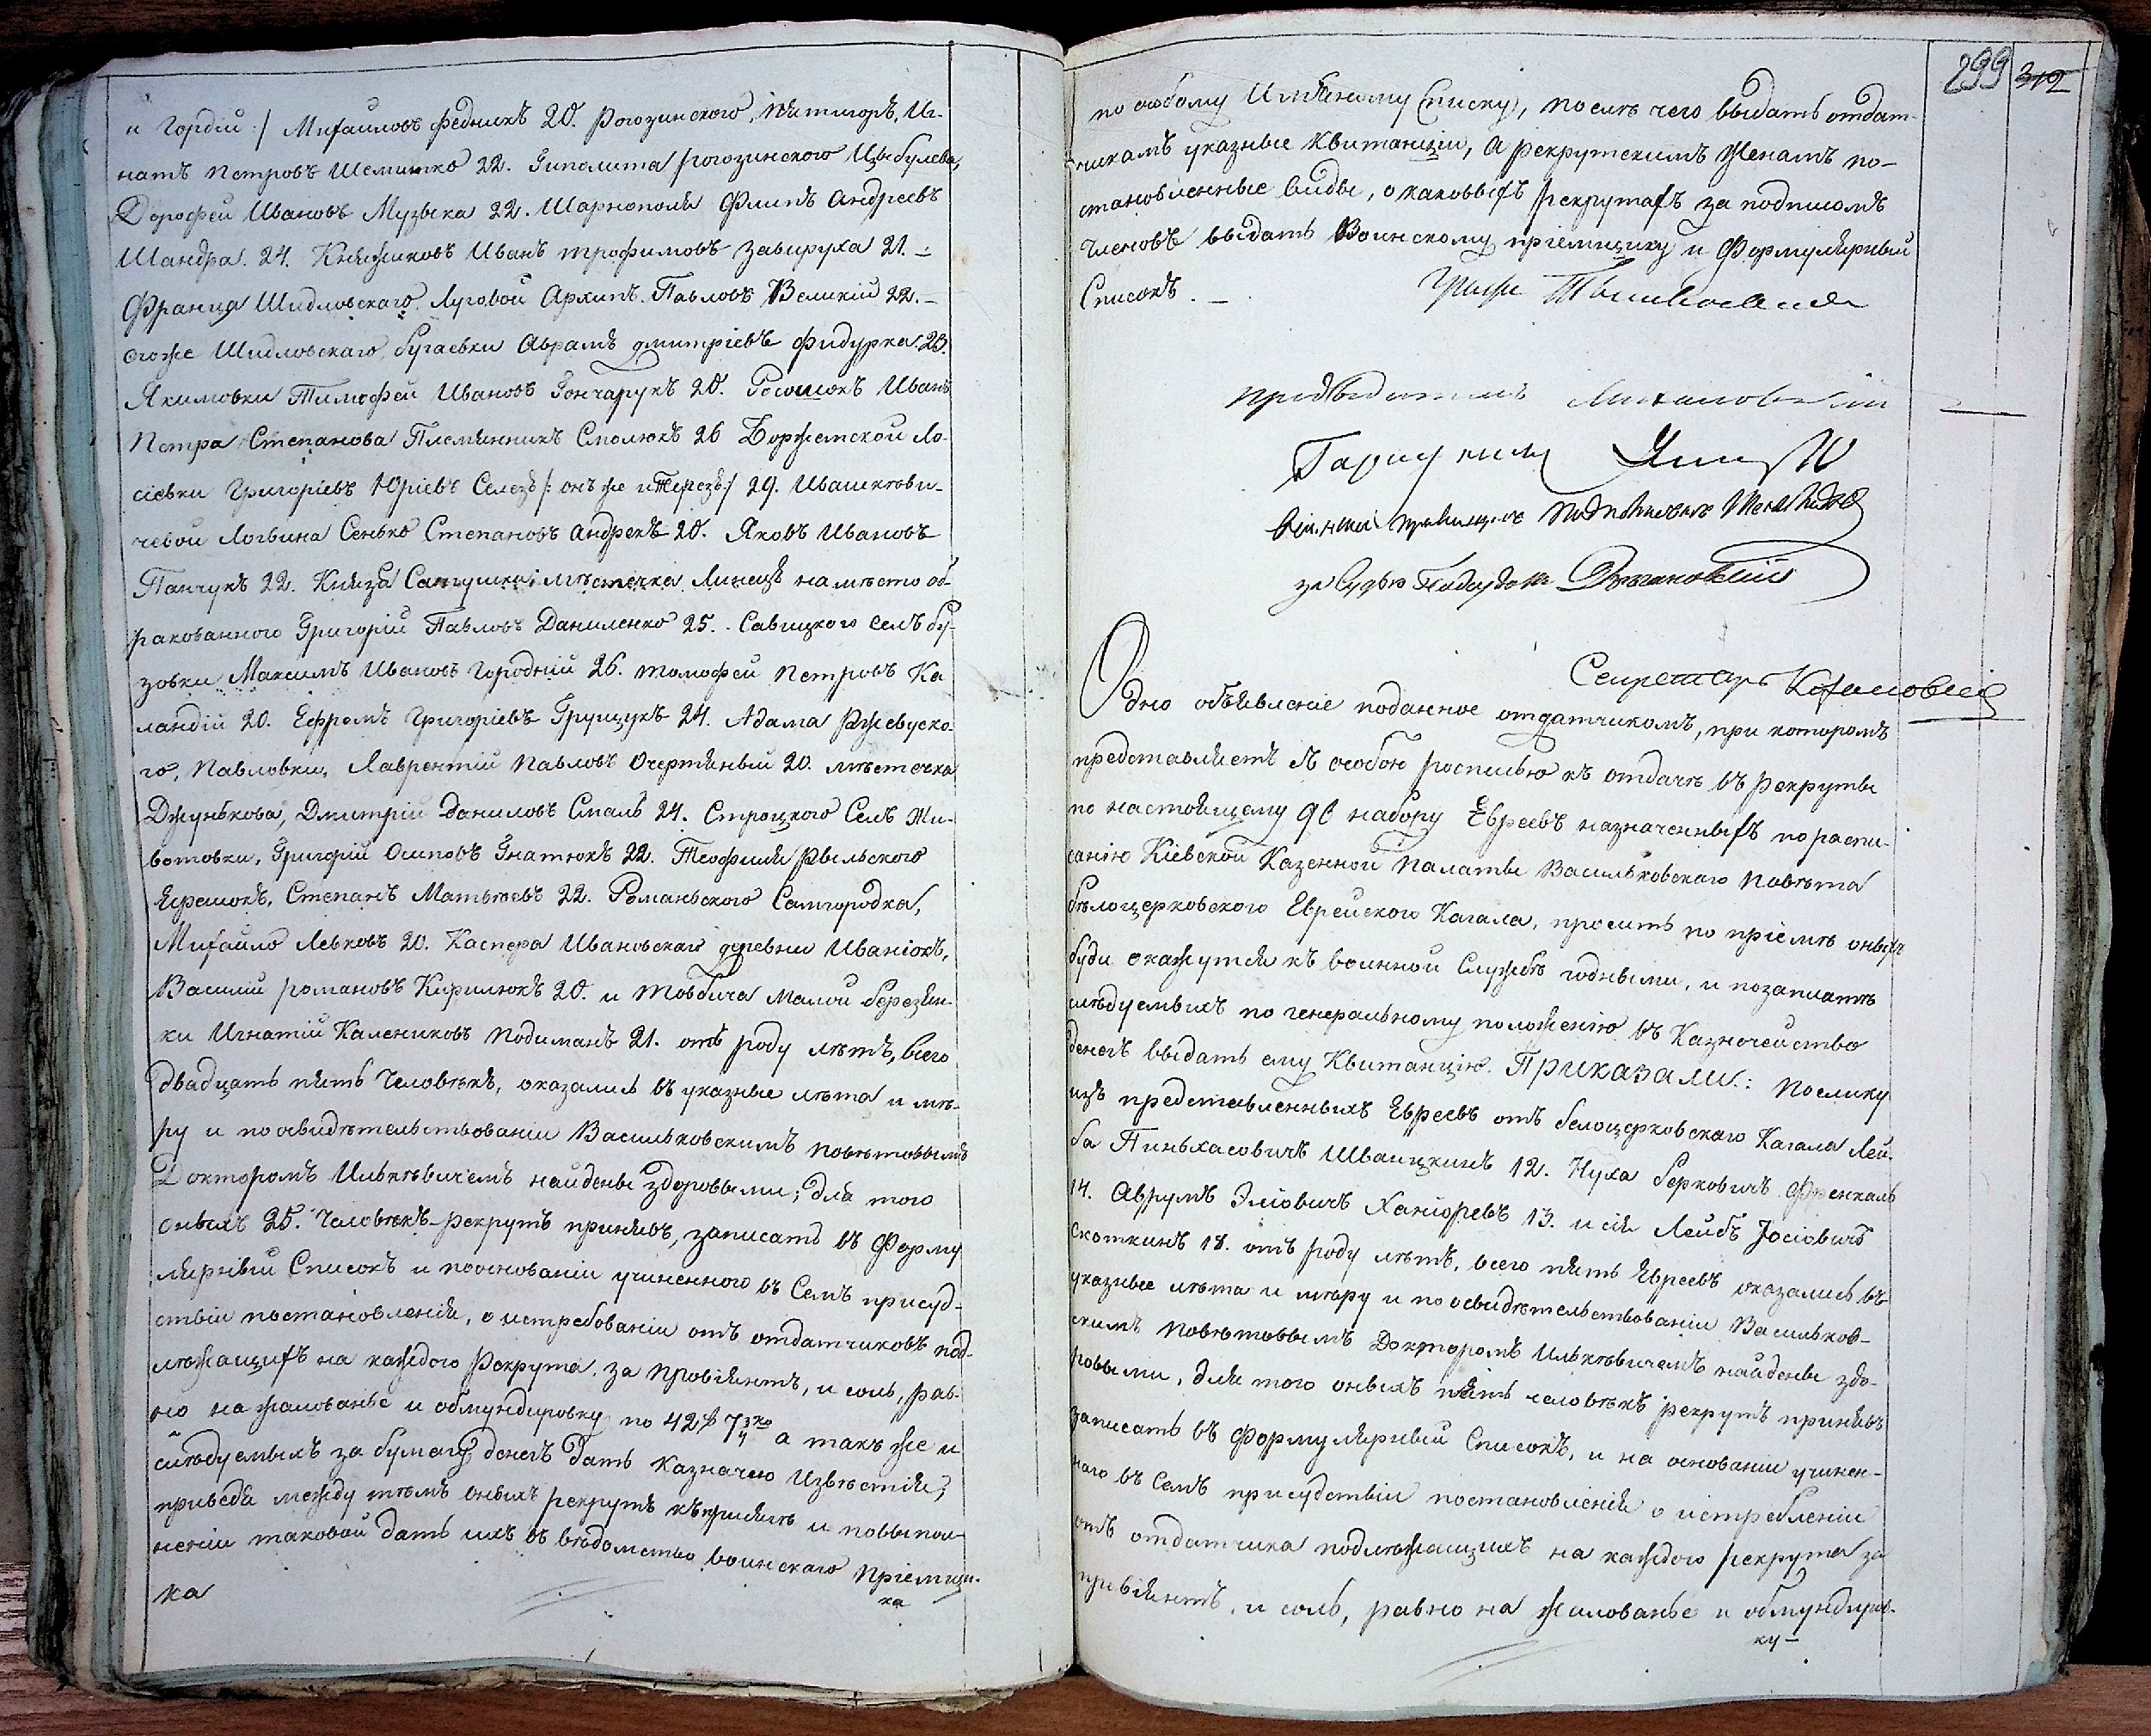 и Гордій :/ Михайловъ Федникъ 20. Рогозинского, Пятигоръ, Иг-
натъ Петровъ Шемитко 22. Гиполита Рогозинского Цыбулева,
Дорофей Ивановъ Музыка 22. Шарнополя Филипъ Андреевъ
Шандра. 24. Княжиковъ Иванъ Трофимовъ Завируха 21. –
Франца Шидловскаго Луговой Архипъ Павловъ Великій 22. –
огоже Шидловскаго, Бугаевки Аврамъ Дмитріевъ Фидурка. 23.
Якимовки Тимофей Ивановъ Гончарукъ 20. Росошокъ Иванъ
Петра Степанова Племянникъ Смолюкъ 26 Боржемской Ло-
сіевки Григоріевъ Юріевъ Селезъ /: онъ же и Терезъ :/ 29. Ивашкеви-
чевой Логвина Сенько Степановъ Андрекъ 20. Яковъ Ивановъ
Панчукъ 22. Князя Сангушки мѣстечка Линецъ на мѣсто об-
ракованного Григорій Павловъ Даниленко 25. Савицкого селъ Бу-
зовки Максимъ Ивановъ Городній 26. Томофей Петровъ Ка
ландій 20. Ефремъ Григоріевъ Грищукъ 24. Адама Ржевуско-
го, Павловки, Лаврентій Павловъ Очертяный 20. мѣстечка
Джунькова, Дмитрій Даниловъ Смаль 24. Строцкого Селъ Жи-
вотовки, Григорій Осиповъ Гнатюкъ 22. Теофиля Рыльского
Ярешокъ, Степанъ Матвѣевъ 22. Романьского Самгородка,
Михайло Левковъ 20. Каспера Ивановскаго деревни Иванокъ,
Василій Романовъ Кирилюкъ 20. и Товбича Малой Березян-
ки Игнатій Калениковъ Подиманъ 21. отъ роду лѣтъ, всего
двадцать пять Человѣкъ, оказались въ указные лѣта и мѣ-
ру и по освидѣтельствованіи Васильковскимъ повѣтовымъ
Докторомъ Илькевичемъ найдены здоровыми; для того
оныхъ 25. Человѣкъ рекрутъ принявъ, записать въ Форму
лярный Списокъ и по основаніи учиненного въ Семъ присуд-
ствіи постановленія, о истребованіи отъ отдатчиковъ под-
лѣжащихъ на каждого Рекрута за провіянтъ, и соль, рав-
но на жалованье и обмундировку по 42 р 7¾ ко а такъ же и
слѣдуемыхъ за бумагу денегъ дать Казначею Извѣстія;
приведя между тѣмъ оныхъ рекрутъ къ присягѣ и по выпол-
неніи таковой дать ихъ въ вѣдомство воинскаго Пріемщи-
ка
ка
299 312
по особому Имянному Списку, после чего выдать отдат-
чикамъ указные Квитанціи, а рекрутскимъ Женамъ по-
становленные виды, о каковыхъ рекрутахъ за подписомъ
Членовъ выдать Воинскому пріемщику и Формулярный
Списокъ. –
Секретарь
Одно объявленіе поданное отдатчикомъ, при которомъ
представляетъ съ особою росписью къ отдачѣ въ рекруты
по настоящему 90 набору Евреевъ назначенныхъ по распи-
санію Кіевской Казенной Палаты Васильковскаго Повѣта
Бѣлоцерковского Еврейского Кагала, просить по пріемѣ оныхъ
буди окажутся къ воинной Службѣ годными, и по заплатѣ
слѣдуемыхъ по генеральному положенію въ Казначейство
денегъ выдать ему Квитанцію. Приказали: Поелику
изъ представленныхъ Евреевъ отъ белоцерковскаго Кагала Лей-
ба Пиньхасовичъ Шваицкинъ 12. Нуха Берковичъ Френкаль
14. Аврумъ Эліовичъ Ханіоревъ 13. и сія Лейбъ Іосіовичъ
Скоткинъ 18. отъ роду лѣтъ, всего пять Евреевъ оказались въ
указные лѣта и мѣру и по освидѣтельствованіи Васильков-
скимъ Повѣтовымъ Докторомъ Илькевичемъ найдены здо-
ровыми, для того оныхъ пять человѣкъ рекрутъ принявъ
записать въ Формулярный Списокъ, и на основаніи учинен-
наго въ Семъ присудствіи постановленія о истребленіи
отъ отдатчика подлѣжащихъ на каждого рекрута за
провіянтъ, и соль, равно на жалованье и обмундиров-
ку –